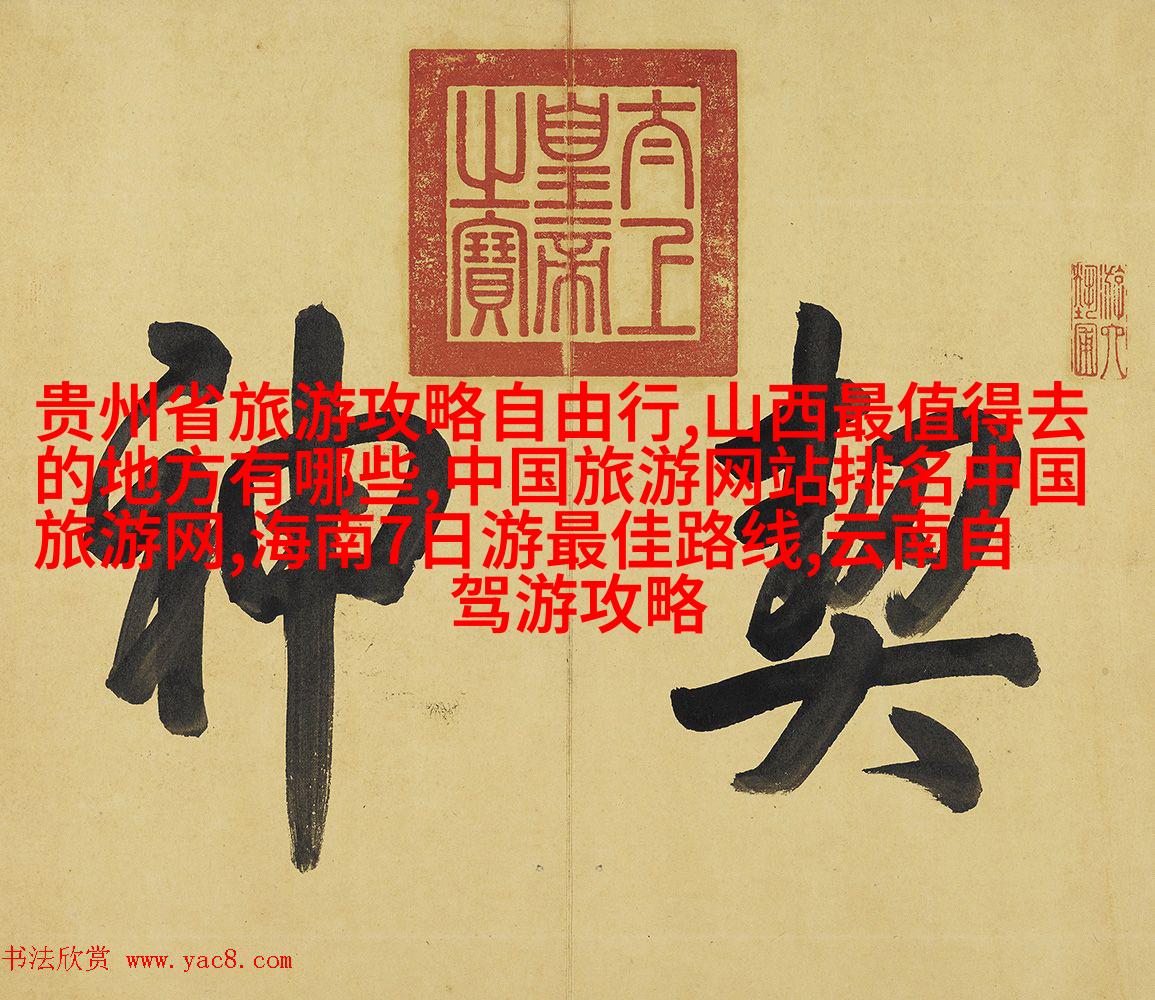 太上
皇帝
之寶
游六
藝圃
契神
贵州省旅游攻略自由行,山西最值得去
的地方有哪些,中国旅游网站排名中国
旅游网,海南7日游最佳路线,云南自
驾游攻略
书法欣赏 www.yac8.com